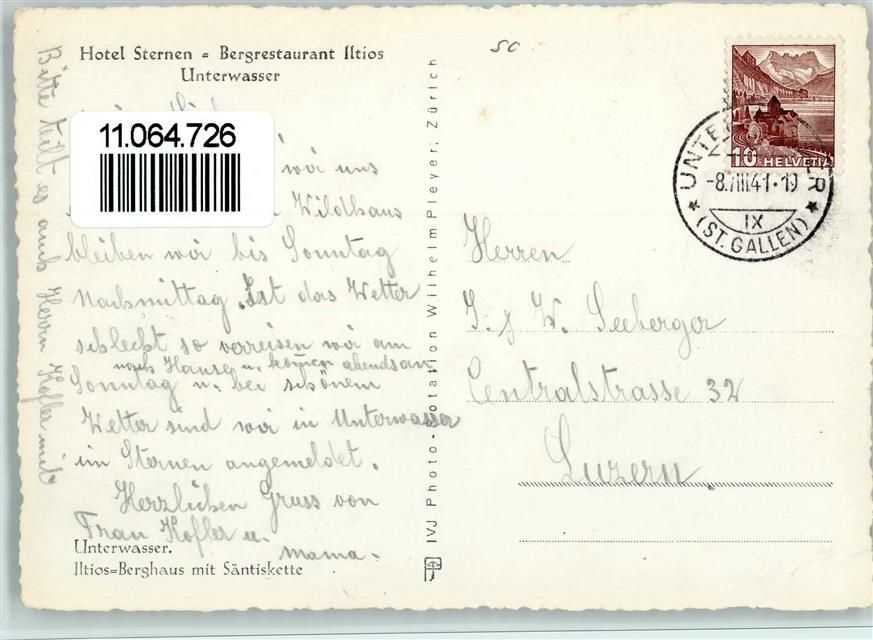 Hotel Sternen = Bergrestaurant Iltios
Unterwasser
11.064.726
wir uns
Wildhaus
bleiben wir bis Sonntag
Nachmittag. Ist das Wetter
schlecht so verreisen wir am
nach Hause u. kom̄en abends an
Sonntag u. bei schönem
Wetter sind wir in Unterwasser
im Sternen angemeldet.
Herzlichen Gruss von
Frau Kofler u.
mama.
Unterwasser.
Iltios=Berghaus mit Säntiskette
Bitte teilt es auch Herrn Kofler mit
IVJ Photo-Rotation Wilhelm Pleyer, Zürich
50
10 HELVETIA
UNTERWASSER
-8.VIII.41-19
IX
(ST. GALLEN)
Herren
J. & W. Seeberger
Centralstrasse 32
Luzern.